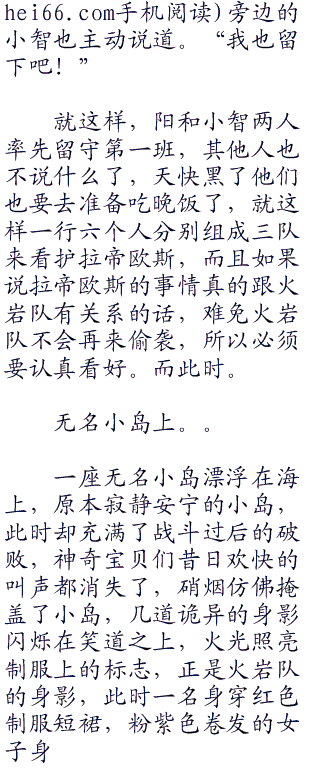 hei66.com手机阅读)旁边的
小智也主动说道。“我也留
下吧！”
就这样，阳和小智两人
率先留守第一班，其他人也
不说什么了，天快黑了他们
也要去准备吃晚饭了，就这
样一行六个人分别组成三队
来看护拉帝欧斯，而且如果
说拉帝欧斯的事情真的跟火
岩队有关系的话，难免火岩
队不会再来偷袭，所以必须
要认真看好。而此时。
无名小岛上。。
一座无名小岛漂浮在海
上，原本寂静安宁的小岛，
此时却充满了战斗过后的破
败，神奇宝贝们昔日欢快的
叫声都消失了，硝烟仿佛掩
盖了小岛，几道诡异的身影
闪烁在笑道之上，火光照亮
制服上的标志，正是火岩队
的身影，此时一名身穿红色
制服短裙，粉紫色卷发的女
子身